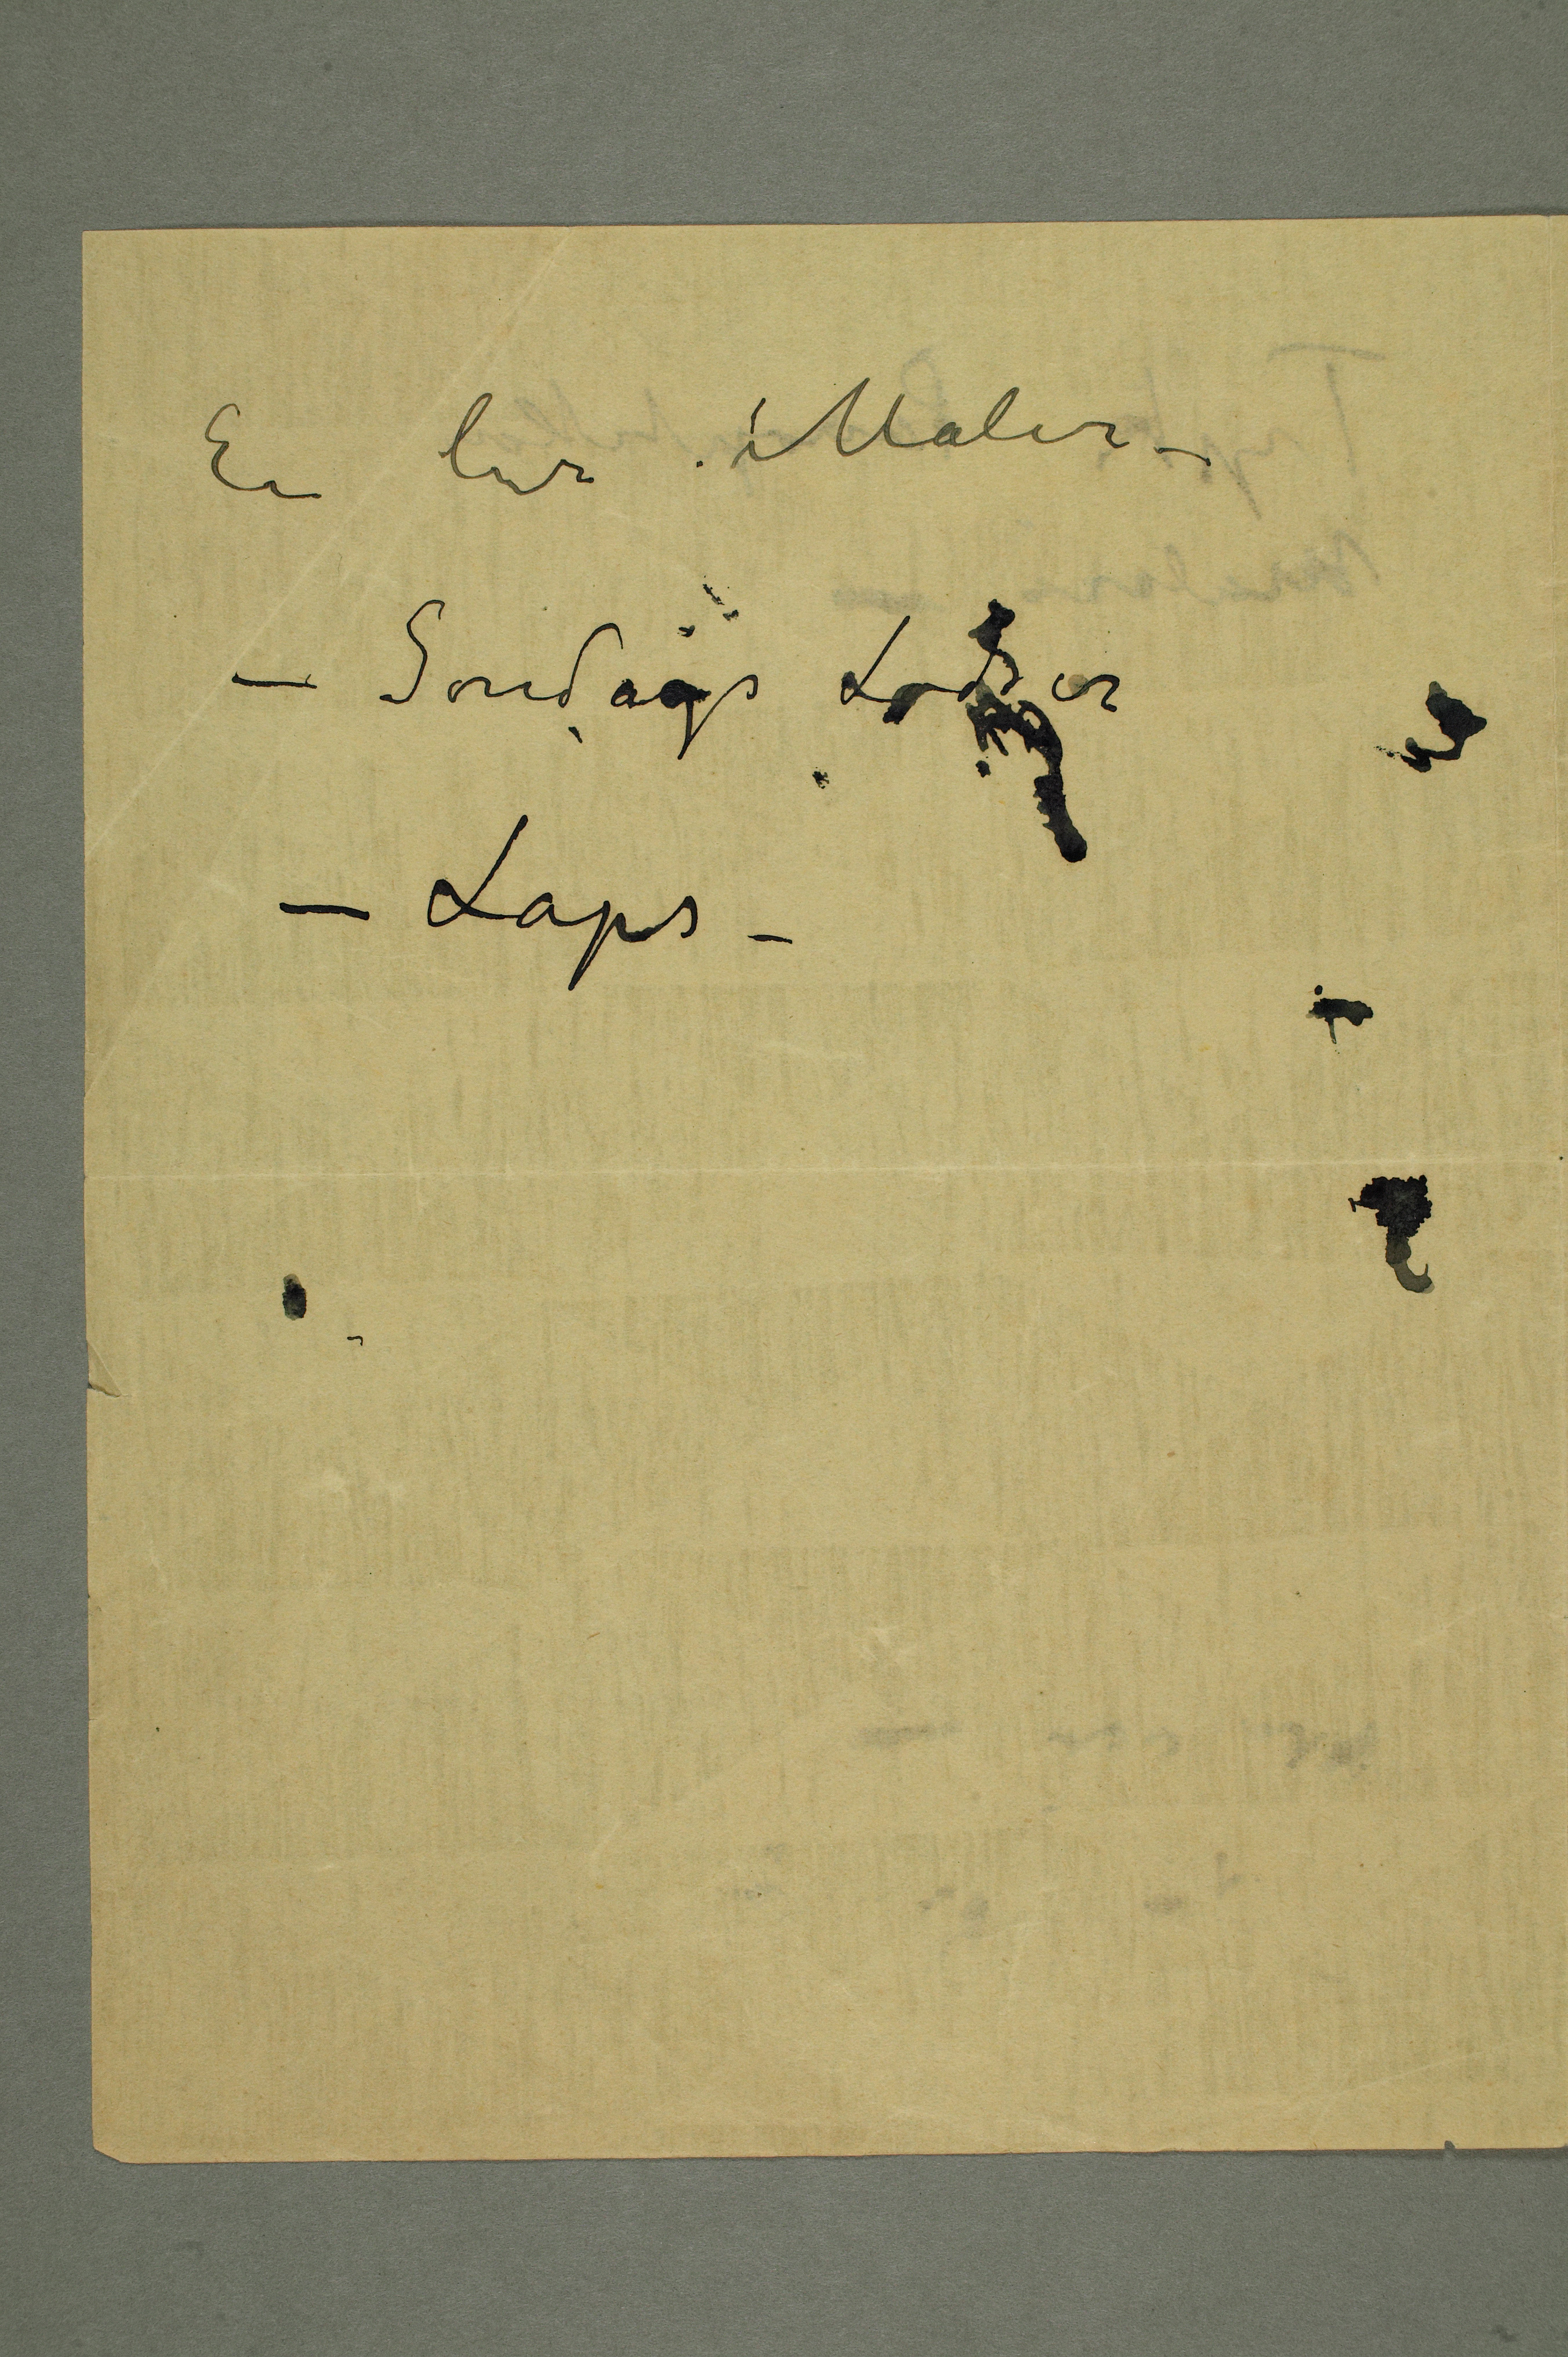 En lur Maler –
– Sondags Lodser
– Laps –